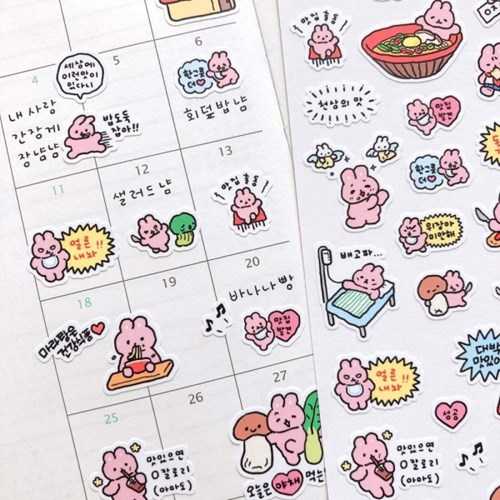 4
5
6
세상에
이런맛이
있다니
한그릇
더♥
내사랑
간장게
장냠냠
밥도둑
잡아!!
회덮밥냠
11
12
13
샐러드냠
맛집 출동
얼른
내놔 !!
18
19
20
바나나빵
마라탕은
건강식품
맛집
발견
25
26
27
맛있으면
0칼로리
(아마도)
오늘은 야채 먹는
맛집 출동
천상의 맛
맛집
발견
한그릇
더♥
위장아
미안해
배고파...
대박
맛있어
얼른
내놔 !!
성공
맛있으면
0칼로리
(아마도)